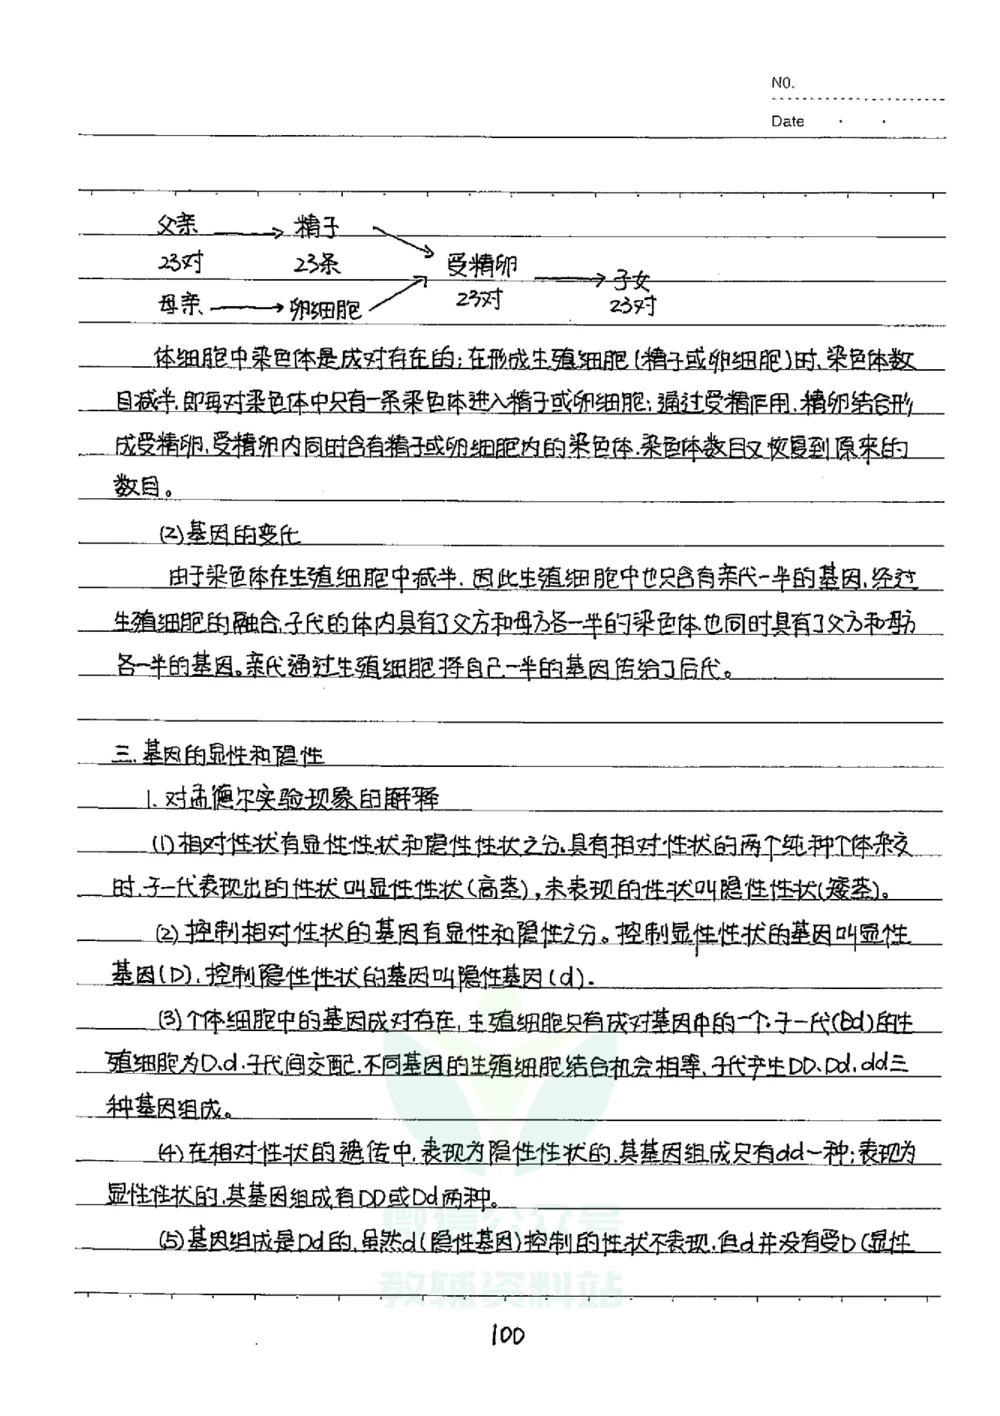 NO.
Date
父亲 → 精子
23对 23条 受精卵 → 子女
母亲 → 卵细胞 23对 23对
体细胞中染色体是成对存在的;在形成生殖细胞(精子或卵细胞)时,染色体数
目减半,即每对染色体中只有一条染色体进入精子或卵细胞;通过受精作用,精卵结合形
成受精卵,受精卵内同时含有精子或卵细胞内的染色体,染色体数目又恢复到原来的
数目。
(2)基因的变化
由于染色体在生殖细胞中减半,因此生殖细胞中也只含有亲代一半的基因,经过
生殖细胞的融合,子代的体内具有了父方和母方各一半的染色体也同时具有了父方和母方
各一半的基因。亲代通过生殖细胞将自己一半的基因传给了后代。
三.基因的显性和隐性
1.对孟德尔实验现象的解释
(1)相对性状有显性性状和隐性性状之分,具有相对性状的两个纯种个体杂交
时,子一代表现出的性状叫显性性状(高茎),未表现的性状叫隐性性状(矮茎)。
(2)控制相对性状的基因有显性和隐性之分。控制显性性状的基因叫显性
基因(D),控制隐性性状的基因叫隐性基因(d).
(3)个体细胞中的基因成对存在,生殖细胞只有成对基因中的一个.子一代(Dd)的生
殖细胞为D、d.子代间交配,不同基因的生殖细胞结合机会相等,子代产生DD、Dd、dd三
种基因组成。
(4)在相对性状的遗传中,表现为隐性性状的,其基因组成只有dd一种;表现为
显性性状的,其基因组成有DD或Dd两种。
(5)基因组成是Dd的,虽然d(隐性基因)控制的性状不表现,但d并没有受D(显性
微信公众号
教辅资料站
100